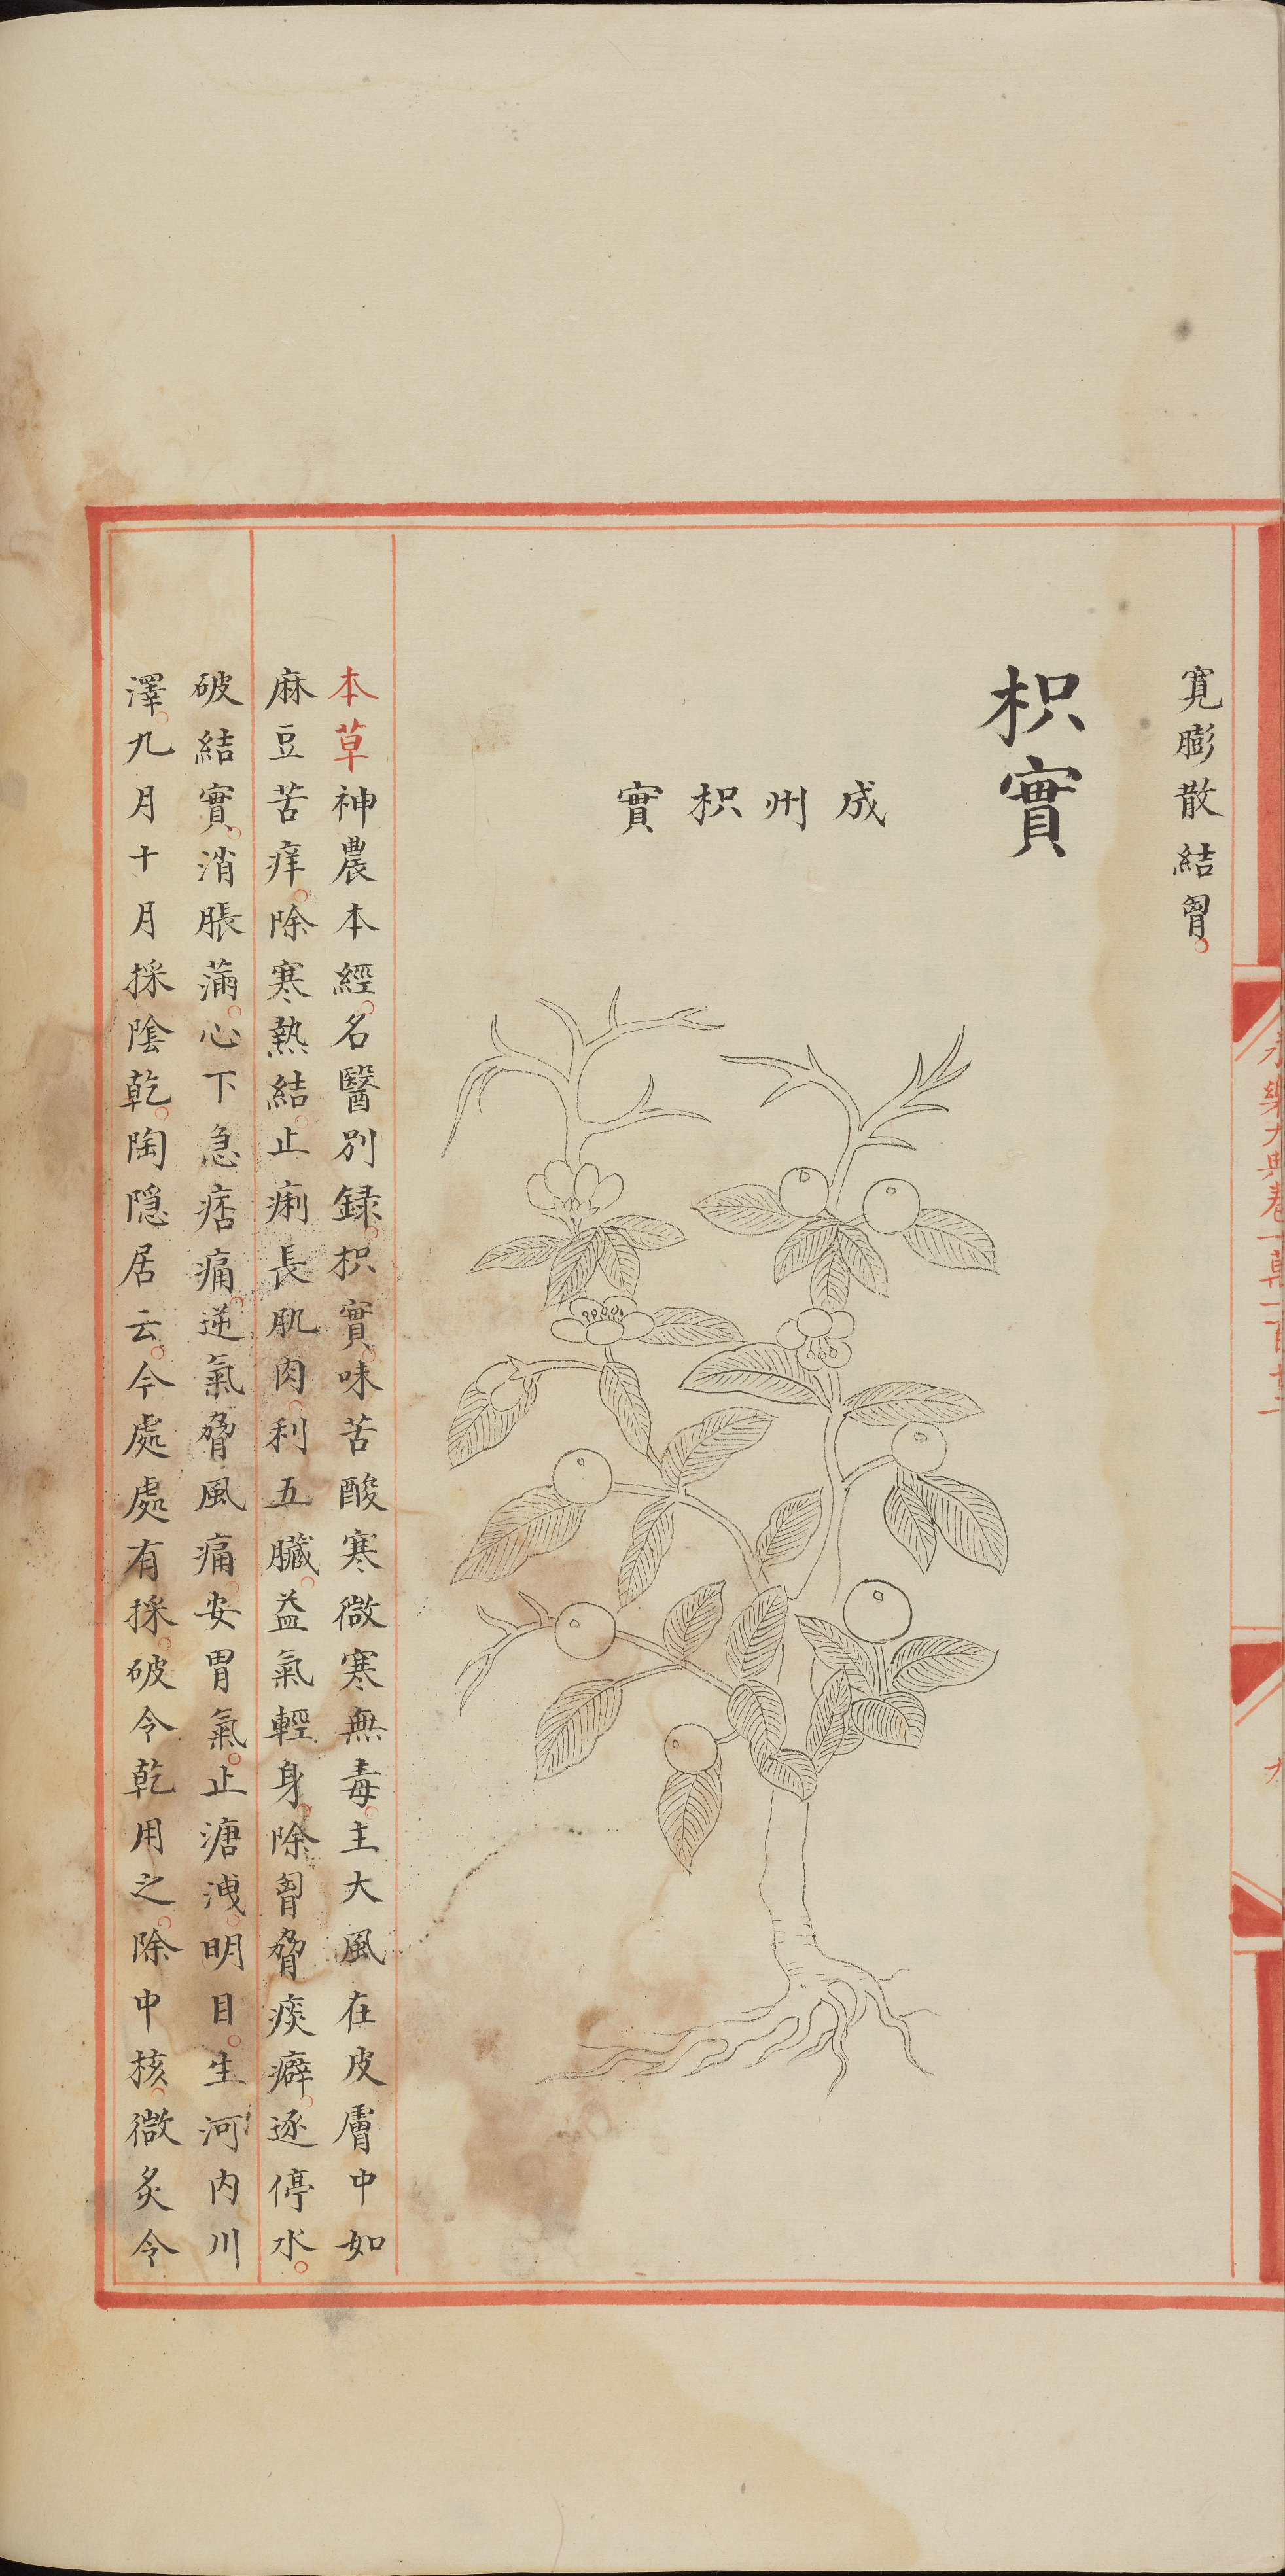 寛膨散結胷。
枳實
成州枳實
本草神農本經。名醫別録。枳實。味苦酸寒微寒無毒。主大風在皮膚中如
麻豆苦痒。除寒熱結。止痢長肌肉。利五臟。益氣輕身。除胷脅痰癖。逐停水。
破結實。消脹滿。心下急痞痛。逆氣脅風痛。安胃氣。止溏洩。明目。生河内川
澤。九月十月採陰乾。陶隠居云。今處處有採。破令乾用之。除中核。微炙令
永樂大典卷一萬一
九